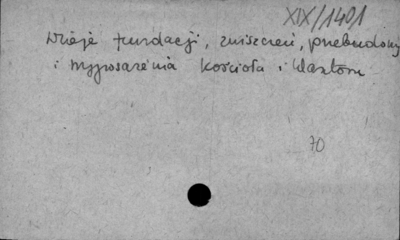 XIX/1401
Dzieje fundacji, zniszczeń, przebudowy
i wyposażenia kościoła i klasztoru
70